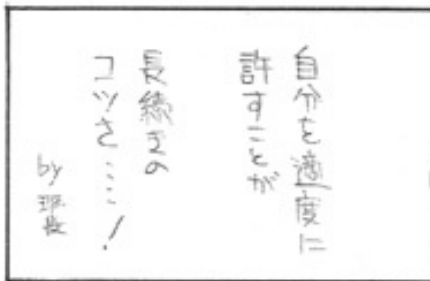 自分を適度に
許すことが
長続きの
コツさ……！
by班長